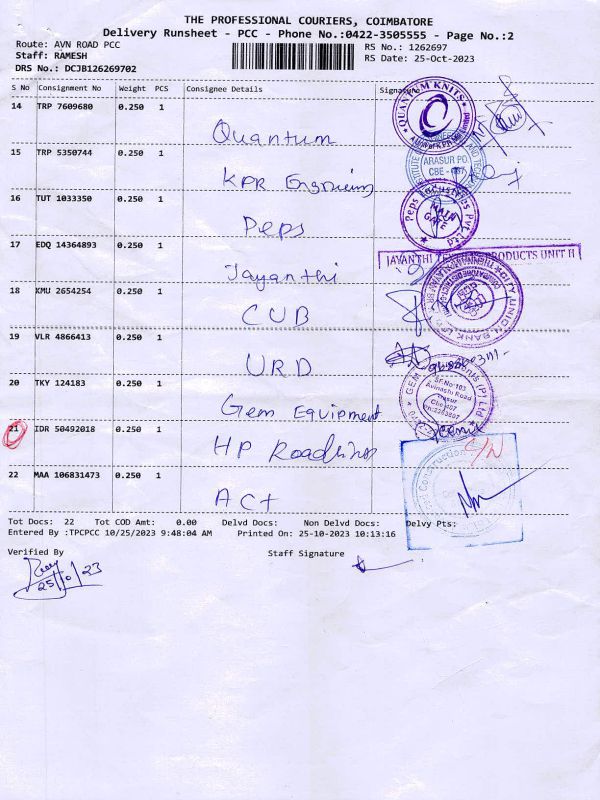 THE PROFESSIONAL COURIERS, COIMBATORE
Delivery Runsheet - PCC - Phone No.:0422-3505555 - Page No.:2
Route: AVN ROAD PCC RS No.: 1262697
Staff: RAMESH RS Date: 25-Oct-2023
DRS No.: DCJB126269702
S No Consignment No Weight PCS Consignee Details Signature
14 TRP 7609680 0.250 1 Quantum
QUANTUM KNITS
15 TRP 5350744 0.250 1 KPR Engineering
ARASUR PO.
CBE - 407
16 TUT 1033350 0.250 1 Peps
Peps Industries Pvt Ltd
MAIN
GATE
17 EDQ 14364893 0.250 1 Jayanthi
JAYANTHI PRODUCTS UNIT II
18 KMU 2654254 0.250 1 CUB
CITY UNION BANK LTD
19 VLR 4866413 0.250 1 URD
20 TKY 124183 0.250 1 Gem Equipment
GEM (P) Ltd
SF.No:103
Avinashi Road
21 IDR 50492018 0.250 1 HP Roadlines
22 MAA 106831473 0.250 1 Act
Tot Docs: 22 Tot COD Amt: 0.00 Delvd Docs: Non Delvd Docs: Delvy Pts:
Entered By :TPCPCC 10/25/2023 9:48:04 AM Printed On: 25-10-2023 10:13:16
Verified By Staff Signature
25/10/23